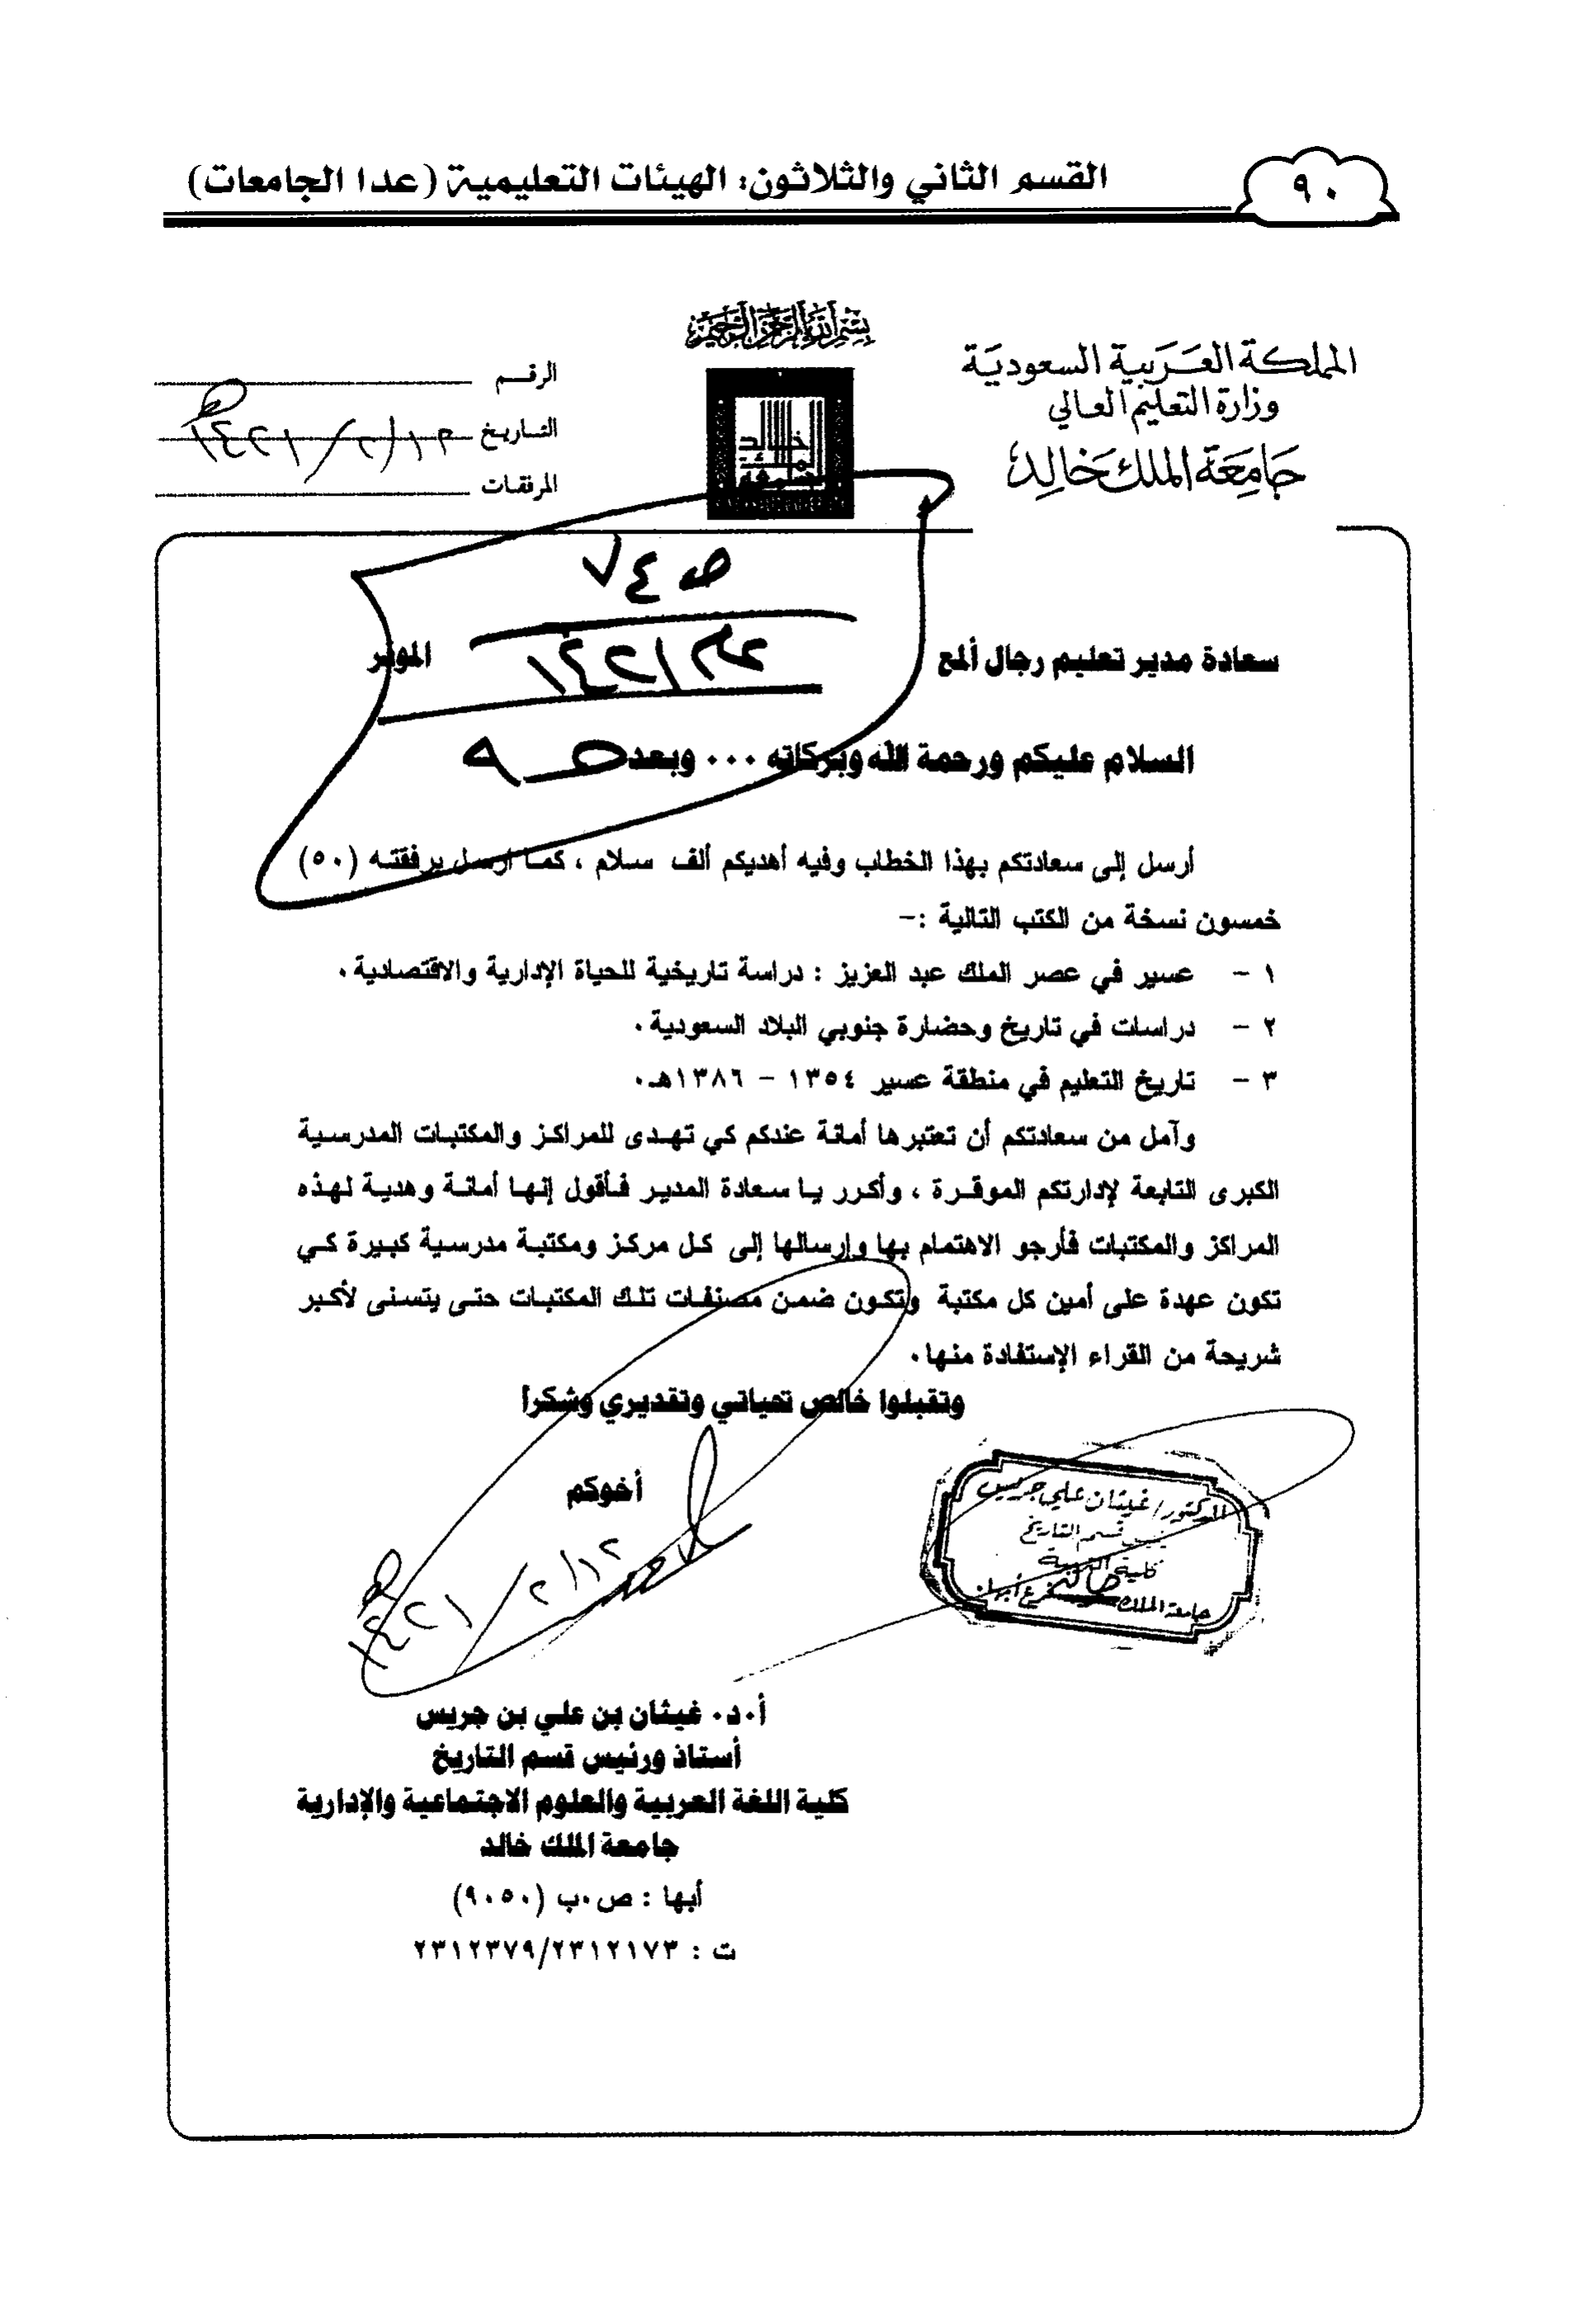 ٩٠
القسم الثاني والثلاثون: الهيئات التعليمية (عدا الجامعات)
بسم الله الرحمن الرحيم
المملكة العربية السعودية
وزارة التعليم العالي
جامعة الملك خالد
الرقم
التاريخ ١٤٢١/٢/١٢هـ
المرفقات
ص ٧٤
١٤٢١/
سعادة مدير تعليم رجال ألمع الموقر
السلام عليكم ورحمة الله وبركاته ... وبعد
أرسل إلى سعادتكم بهذا الخطاب وفيه أهديكم ألف سلام ، كما أرسل برفقته (٥٠)
خمسون نسخة من الكتب التالية :-
١ - عسير في عصر الملك عبد العزيز : دراسة تاريخية للحياة الإدارية والاقتصادية .
٢ - دراسات في تاريخ وحضارة جنوبي البلاد السعودية .
٣ - تاريخ التعليم في منطقة عسير ١٣٥٤ - ١٣٨٦هـ.
وآمل من سعادتكم أن تعتبرها أمانة عندكم كي تهدى للمراكز والمكتبات المدرسية
الكبرى التابعة لإدارتكم الموقرة ، وأكرر يا سعادة المدير فأقول إنها أمانة وهدية لهذه
المراكز والمكتبات فأرجو الاهتمام بها وإرسالها إلى كل مركز ومكتبة مدرسية كبيرة كي
تكون عهدة على أمين كل مكتبة وتكون ضمن مصنفات تلك المكتبات حتى يتسنى لأكبر
شريحة من القراء الإستفادة منها.
وتقبلوا خالص تحياتي وتقديري وشكرا
أخوكم
١٤٢١/٢/١٢هـ
الدكتور/ غيثان علي جريس
رئيس قسم التاريخ
كلية التربية
جامعة الملك خالد فرع أبها
أ.د. غيثان بن علي بن جريس
أستاذ ورئيس قسم التاريخ
كلية اللغة العربية والعلوم الاجتماعية والإدارية
جامعة الملك خالد
أبها : ص.ب (٩٠٥٠)
ت : ٢٣١٢٣٧٩/٢٣١٢١٧٣